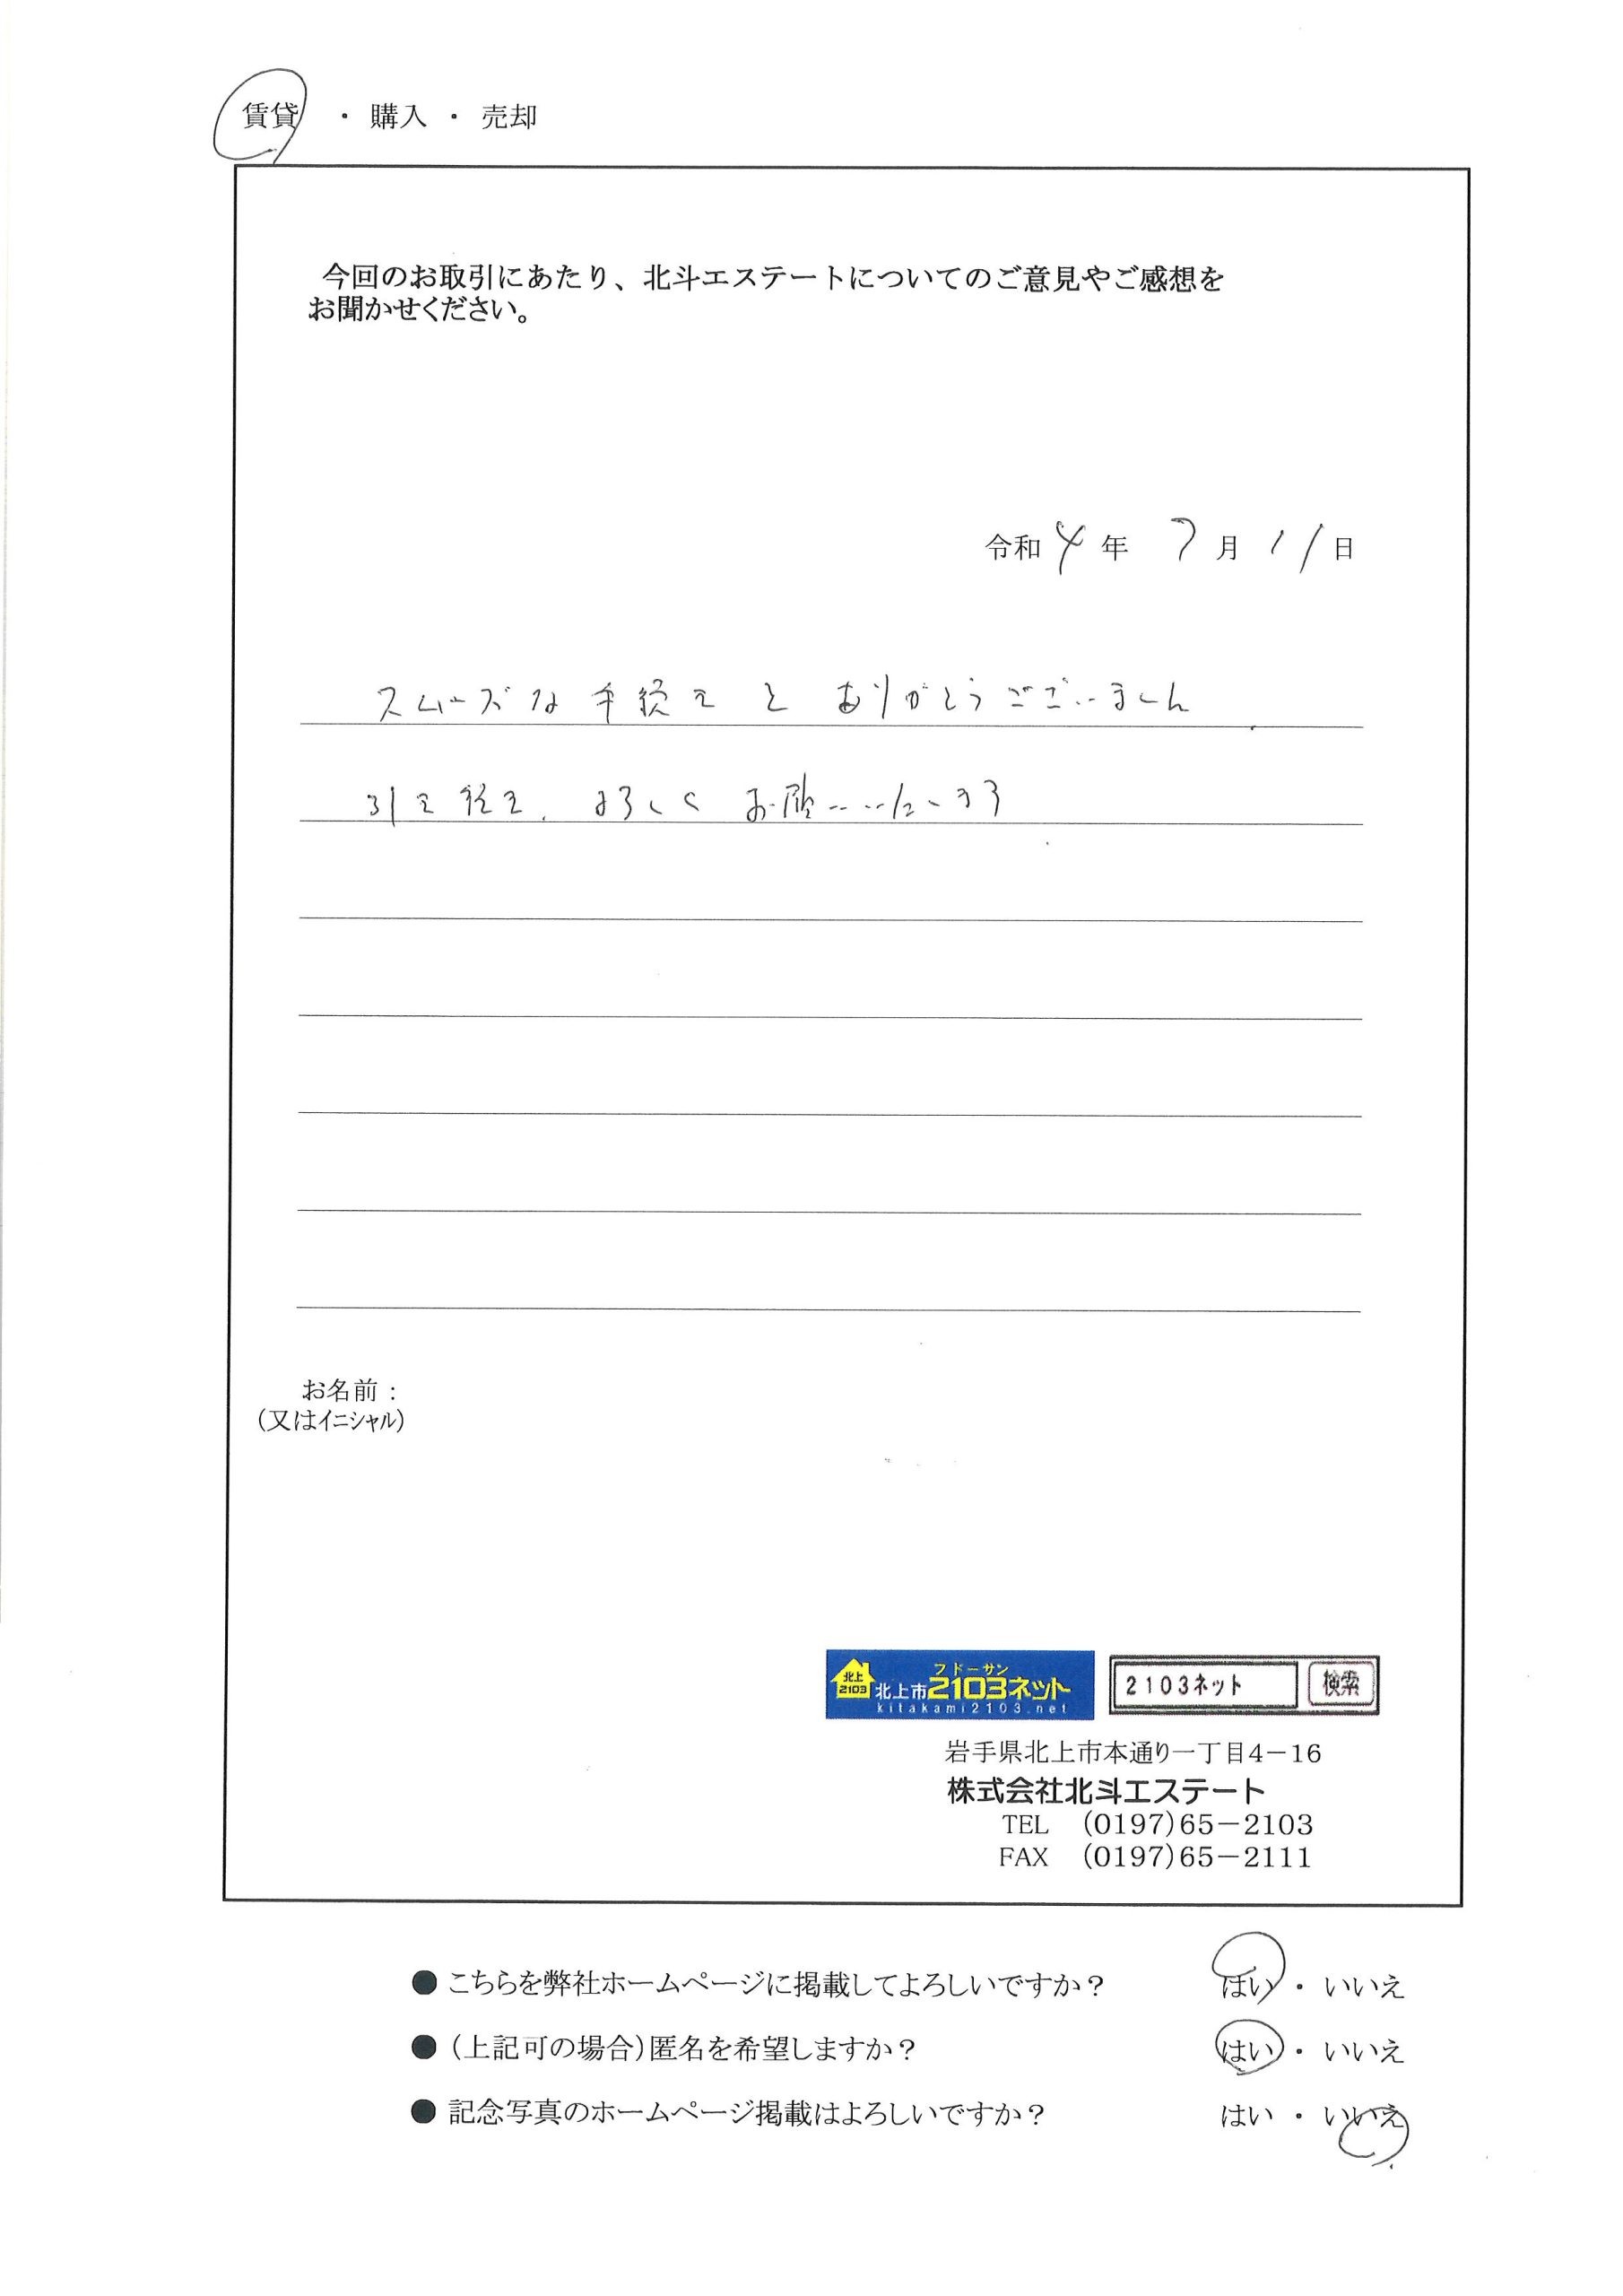 賃貸 ・ 購入 ・ 売却
今回のお取引にあたり、北斗エステートについてのご意見やご感想を
お聞かせください。
令和4年 7月 11日
スムーズな手続きを ありがとうございました
引き続き、よろしく お願いいたします
お名前：
（又はイニシャル）
北上 2103 北上市2103ネット フドーサン
kitakami2103.net
2103ネット 検索
岩手県北上市本通り一丁目4－16
株式会社北斗エステート
TEL （0197）65－2103
FAX （0197）65－2111
●こちらを弊社ホームページに掲載してよろしいですか？ はい ・ いいえ
●（上記可の場合）匿名を希望しますか？ はい ・ いいえ
●記念写真のホームページ掲載はよろしいですか？ はい ・ いいえ